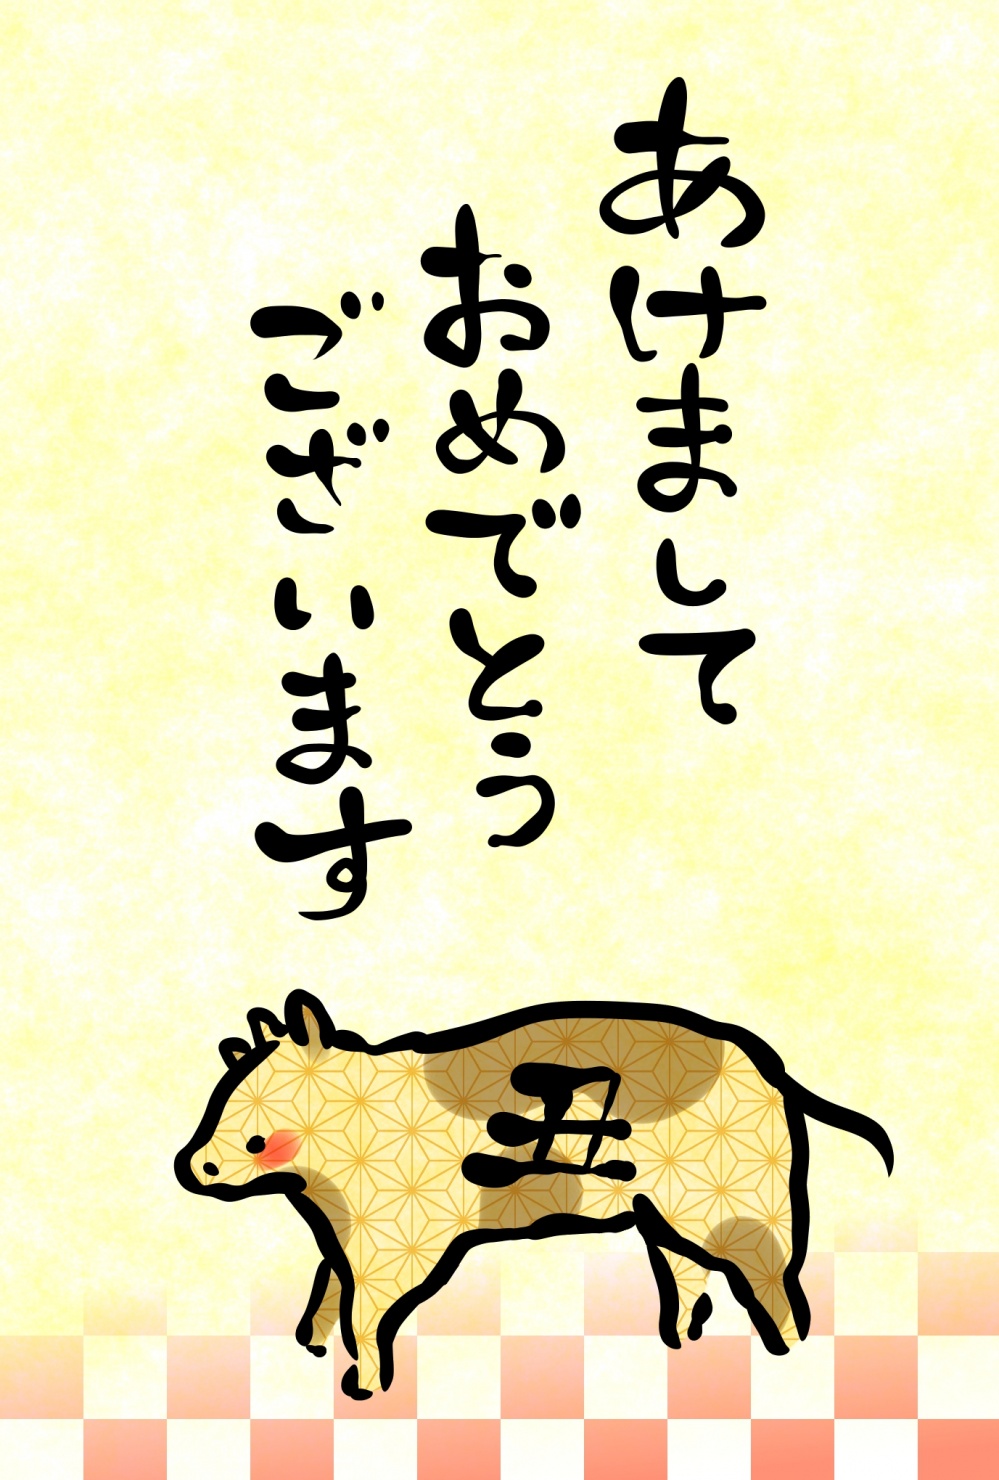 あけまして
おめでとう
ございます
丑